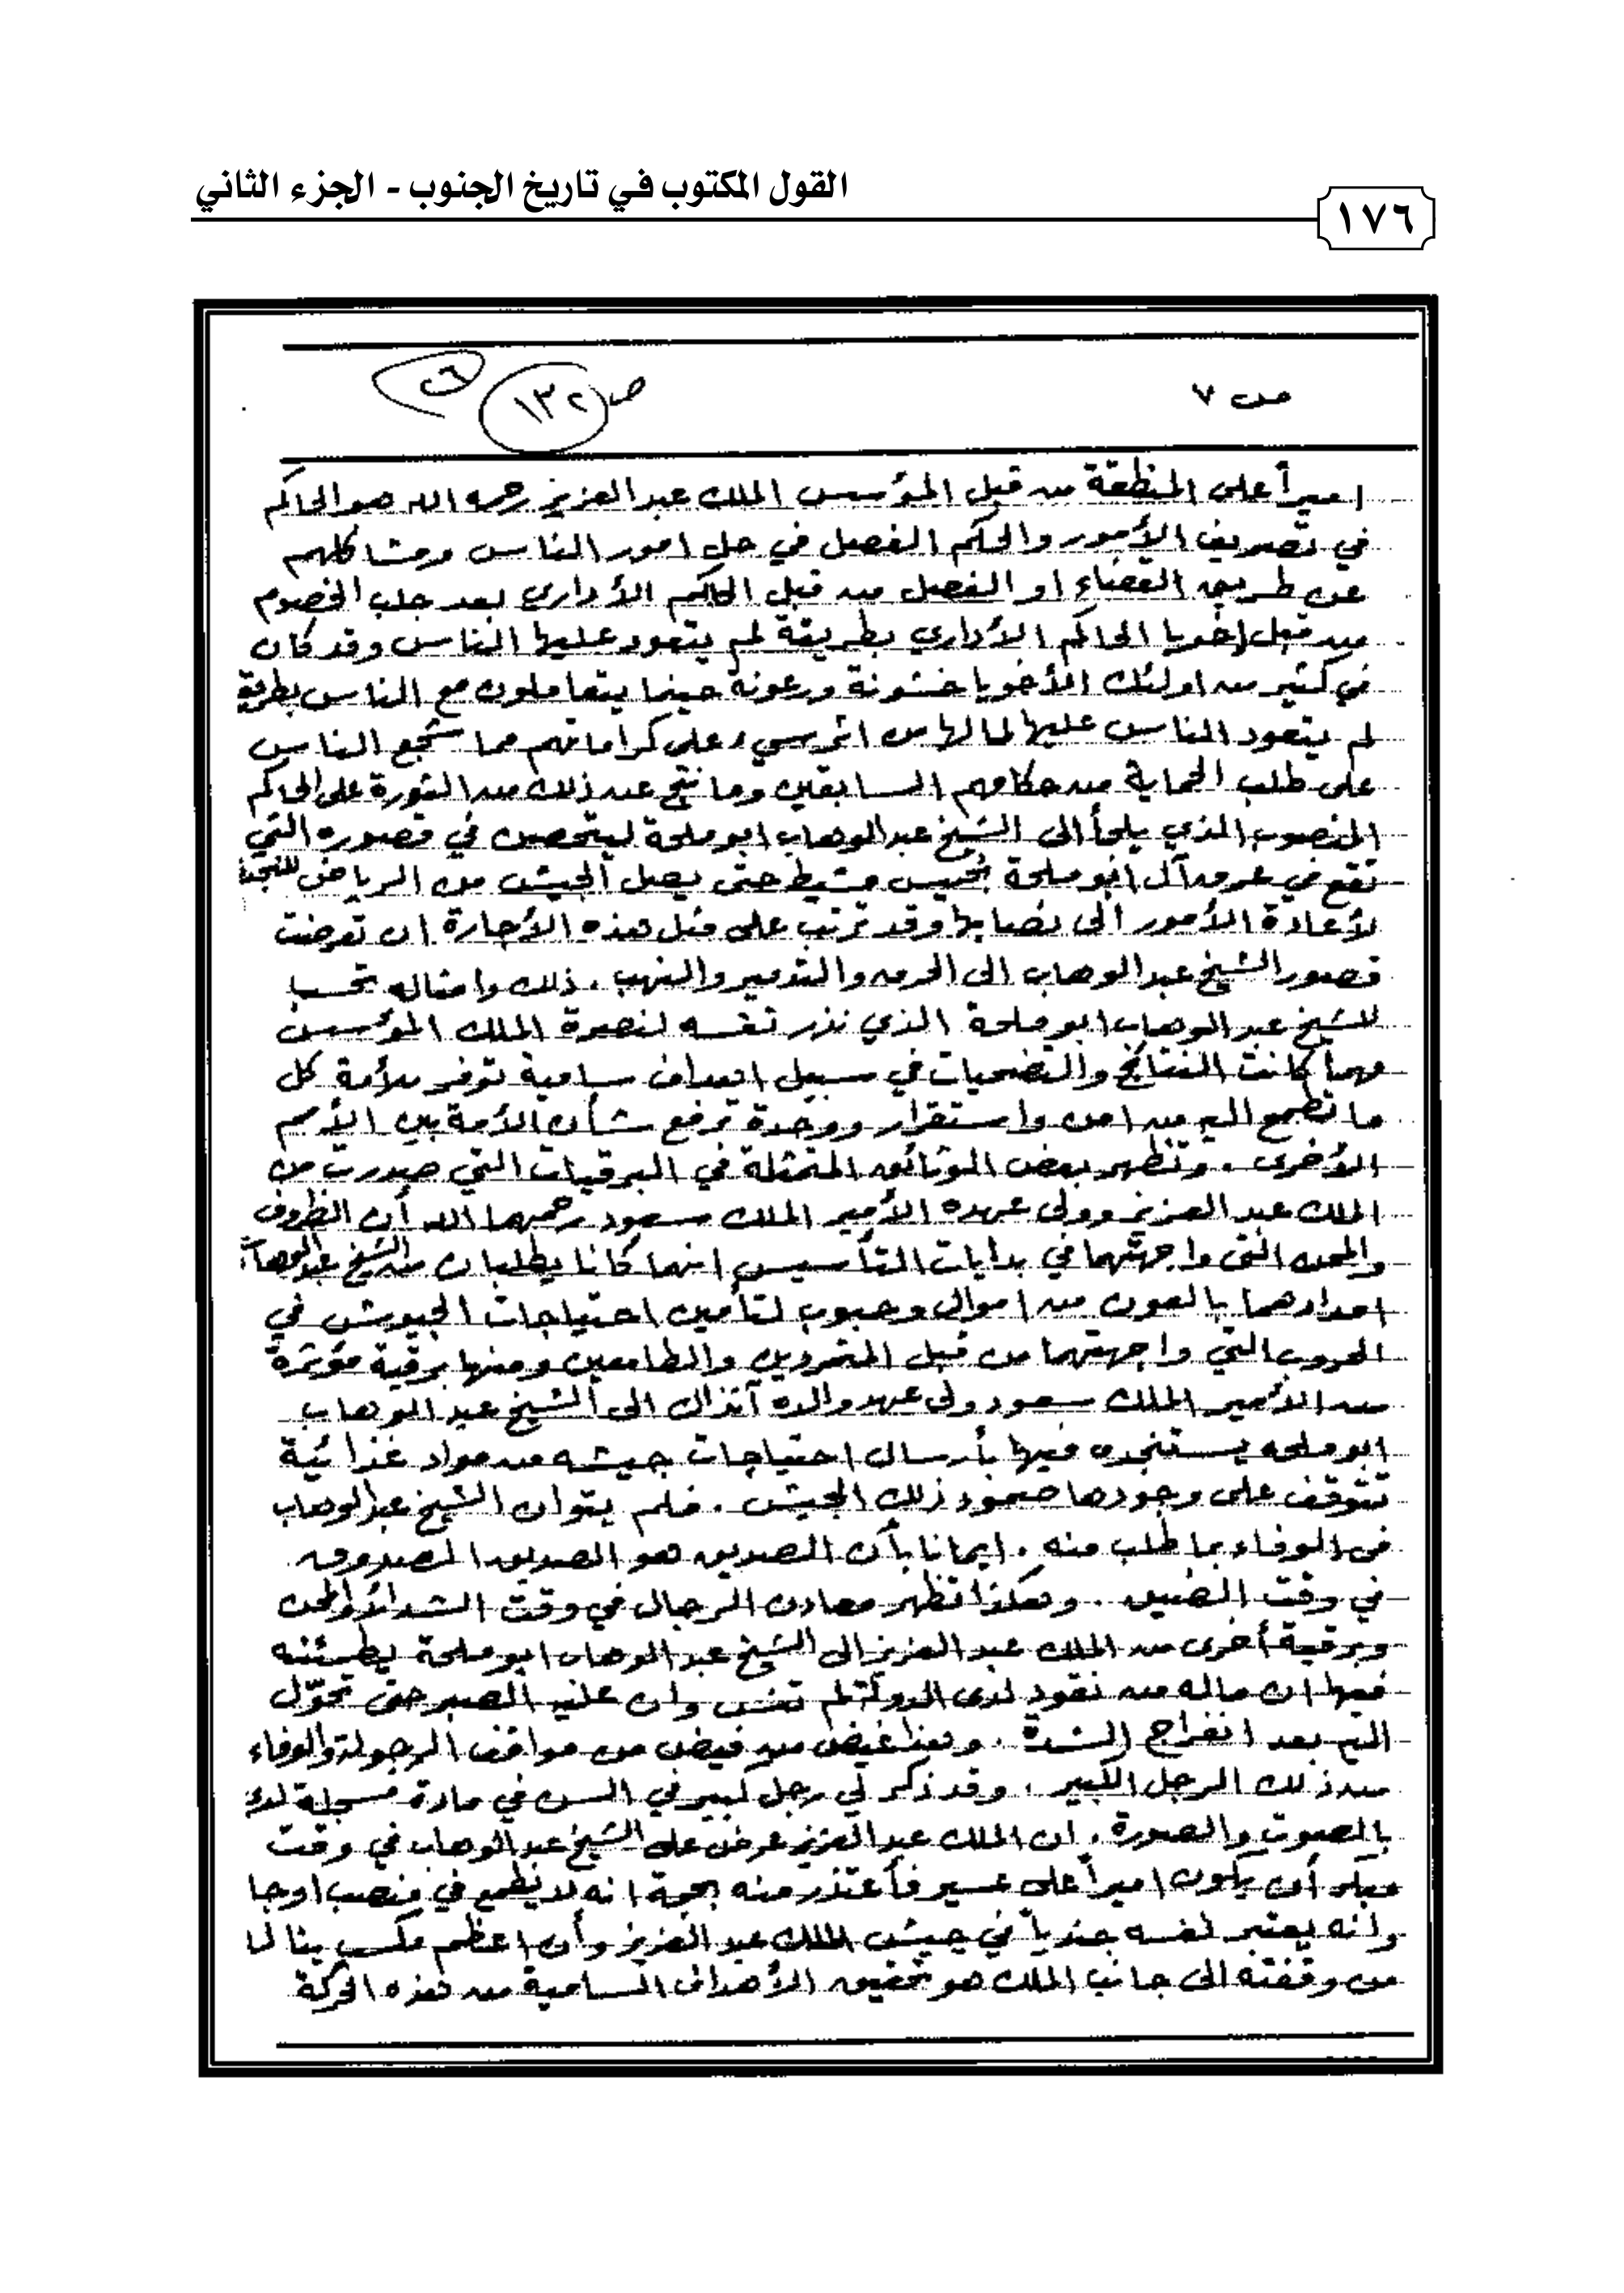 القول المكتوب في تاريخ الجنوب - الجزء الثاني
١٧٦
ص ٧
ص ١٣٢
اميراً على المنطقة من قبل المؤسس الملك عبدالعزيز رحمه الله هو الحاكم
في تصريف الأمور والحكم الفصل في حل امور الناس ومشاكلهم
عن طريق القضاء او الفصل من قبل الحاكم الأداري بعد جلب الخصوم
من قبل اخويا الحاكم الأداري بطريقة لم يتعود عليها الناس وقد كان
في كثير من اولئك الأخويا خشونة ورعونة حينما يتعاملون مع الناس بطريقة
لم يتعود الناس عليها لما لها من اثر سيء على كراماتهم مما شجع الناس
على طلب الحماية من حكامهم السابقين وما نتج عن ذلك من الثورة على الحاكم
المنصوب الذي يلجأ الى الشيخ عبدالوهاب ابو ملحة ليتحصن في قصوره التي
تقع في عرق آل ابو ملحة بخميس مشيط حتى يصل الجيش من الرياض
لأعادة الأمور الى نصابها وقد ترتب على مثل هذه الأجارة ان تعرضت
قصور الشيخ عبدالوهاب الى الحرق والتدمير والنهب . ذلك وامثاله تحسب
للشيخ عبدالوهاب ابو ملحة الذي نذر نفسه لنصرة الملك المؤسس
مهما كانت النتائج والتضحيات في سبيل اهداف سامية توفر للأمة كل
ما تطمح اليه من امن واستقرار ووحدة ترفع شأن الأمة بين الأمم
الأخرى . وتظهر بعض الوثائق المتمثلة في البرقيات التي صدرت من
الملك عبدالعزيز وولي عهده الأمير الملك سعود رحمهما الله أن الظروف
والمحن التي واجهتهما في بدايات التأسيس انهما كانا يطلبان من الشيخ عبدالوهاب
امدادهما بالعون من اموال وحبوب لتأمين احتياجات الجيوش في
الحروب التي واجهتهما من قبل المتمردين والطامعين ومنها برقية مؤثرة
من الأمير الملك سعود ولي عهد والده آنذاك الى الشيخ عبدالوهاب
ابو ملحه يستنجده فيها بأرسال احتياجات جيشه من مواد غذائية
تتوقف على وجودها صمود ذلك الجيش . فلم يتوان الشيخ عبدالوهاب
في الوفاء بما طلب منه . ايمانا بأن الصديق هو الصديق الصدوق
في وقت الضيق . وهكذا تظهر معادن الرجال في وقت الشدائد والمحن
وبرقية أخرى من الملك عبدالعزيز الى الشيخ عبدالوهاب ابو ملحة يطمئنه
فيها ان ماله من نقود لدى الدولة لم تنسى وان عليه الصبر حتى تحوّل
اليه بعد انفراج الشدة . وهذا غيض من فيض من مواقف الرجولة والوفاء
من ذلك الرجل الكبير . وقد ذكر لي رجل كبير في السن في مادة مسجلة لدي
بالصوت والصورة . ان الملك عبدالعزيز عرض على الشيخ عبدالوهاب في وقت
مبكر أن يكون اميراً على عسير فأعتذر منه بحجة انه لا يطمع في منصب اوجا
وانه يعتبر نفسه جندياً في جيش الملك عبدالعزيز وأن اعظم مكسب
من وقفته الى جانب الملك هو تحقيق الأهداف السامية من هذه الحركة